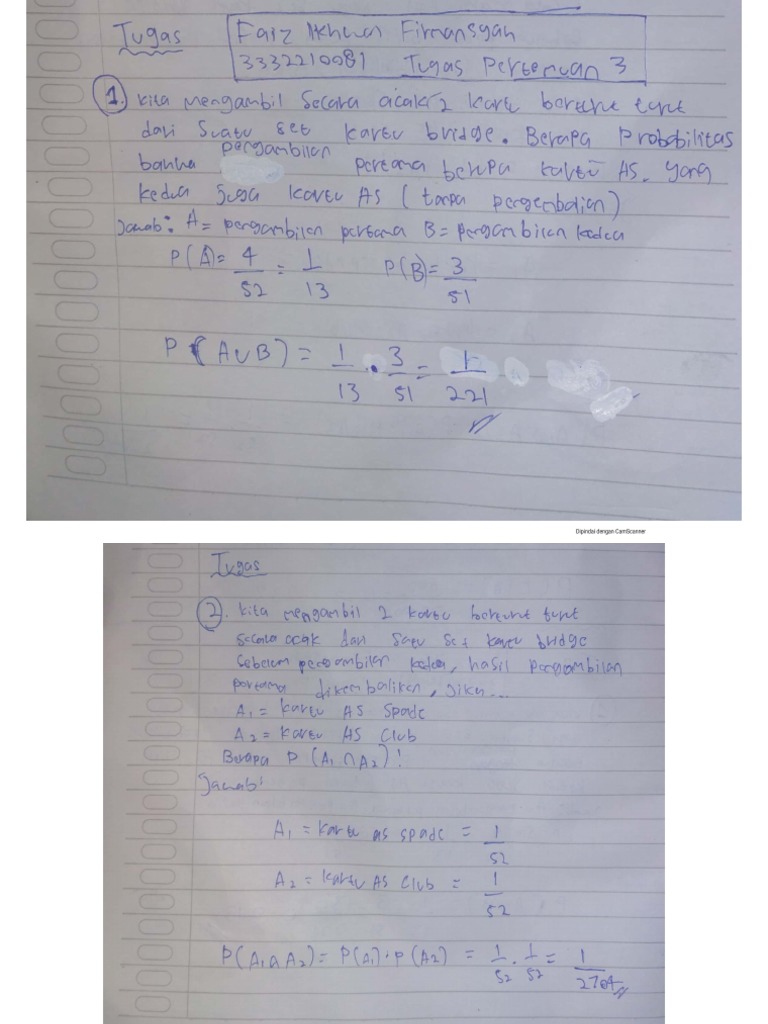 Tugas
Faiz Ikhwan Firmansyah
3332210081 Tugas Pertemuan 3
1. Kita mengambil secara acak 2 kartu berturut turut
dari suatu set kartu bridge. Berapa Probabilitas
bahwa pengambilan pertama berupa kartu AS. yang
kedua juga kartu AS (tanpa pengembalian)
Jawab: A = pengambilan pertama B = pengambilan kedua
P(A) = 4/52 = 1/13 P(B) = 3/51
P(A∪B) = 1/13 . 3/51 = 1/221
Dipindai dengan CamScanner
Tugas
2. Kita mengambil 2 kartu berturut turut
secara acak dari satu set kartu bridge
sebelum pengambilan kedua, hasil pengambilan
pertama dikembalikan, jika...
A₁ = kartu AS spade
A₂ = kartu AS Club
Berapa P (A₁ ∩ A₂)!
Jawab:
A₁ = kartu as spade = 1/52
A₂ = kartu AS Club = 1/52
P(A₁∩A₂) = P(A₁) . P(A2) = 1/52 . 1/52 = 1/2704